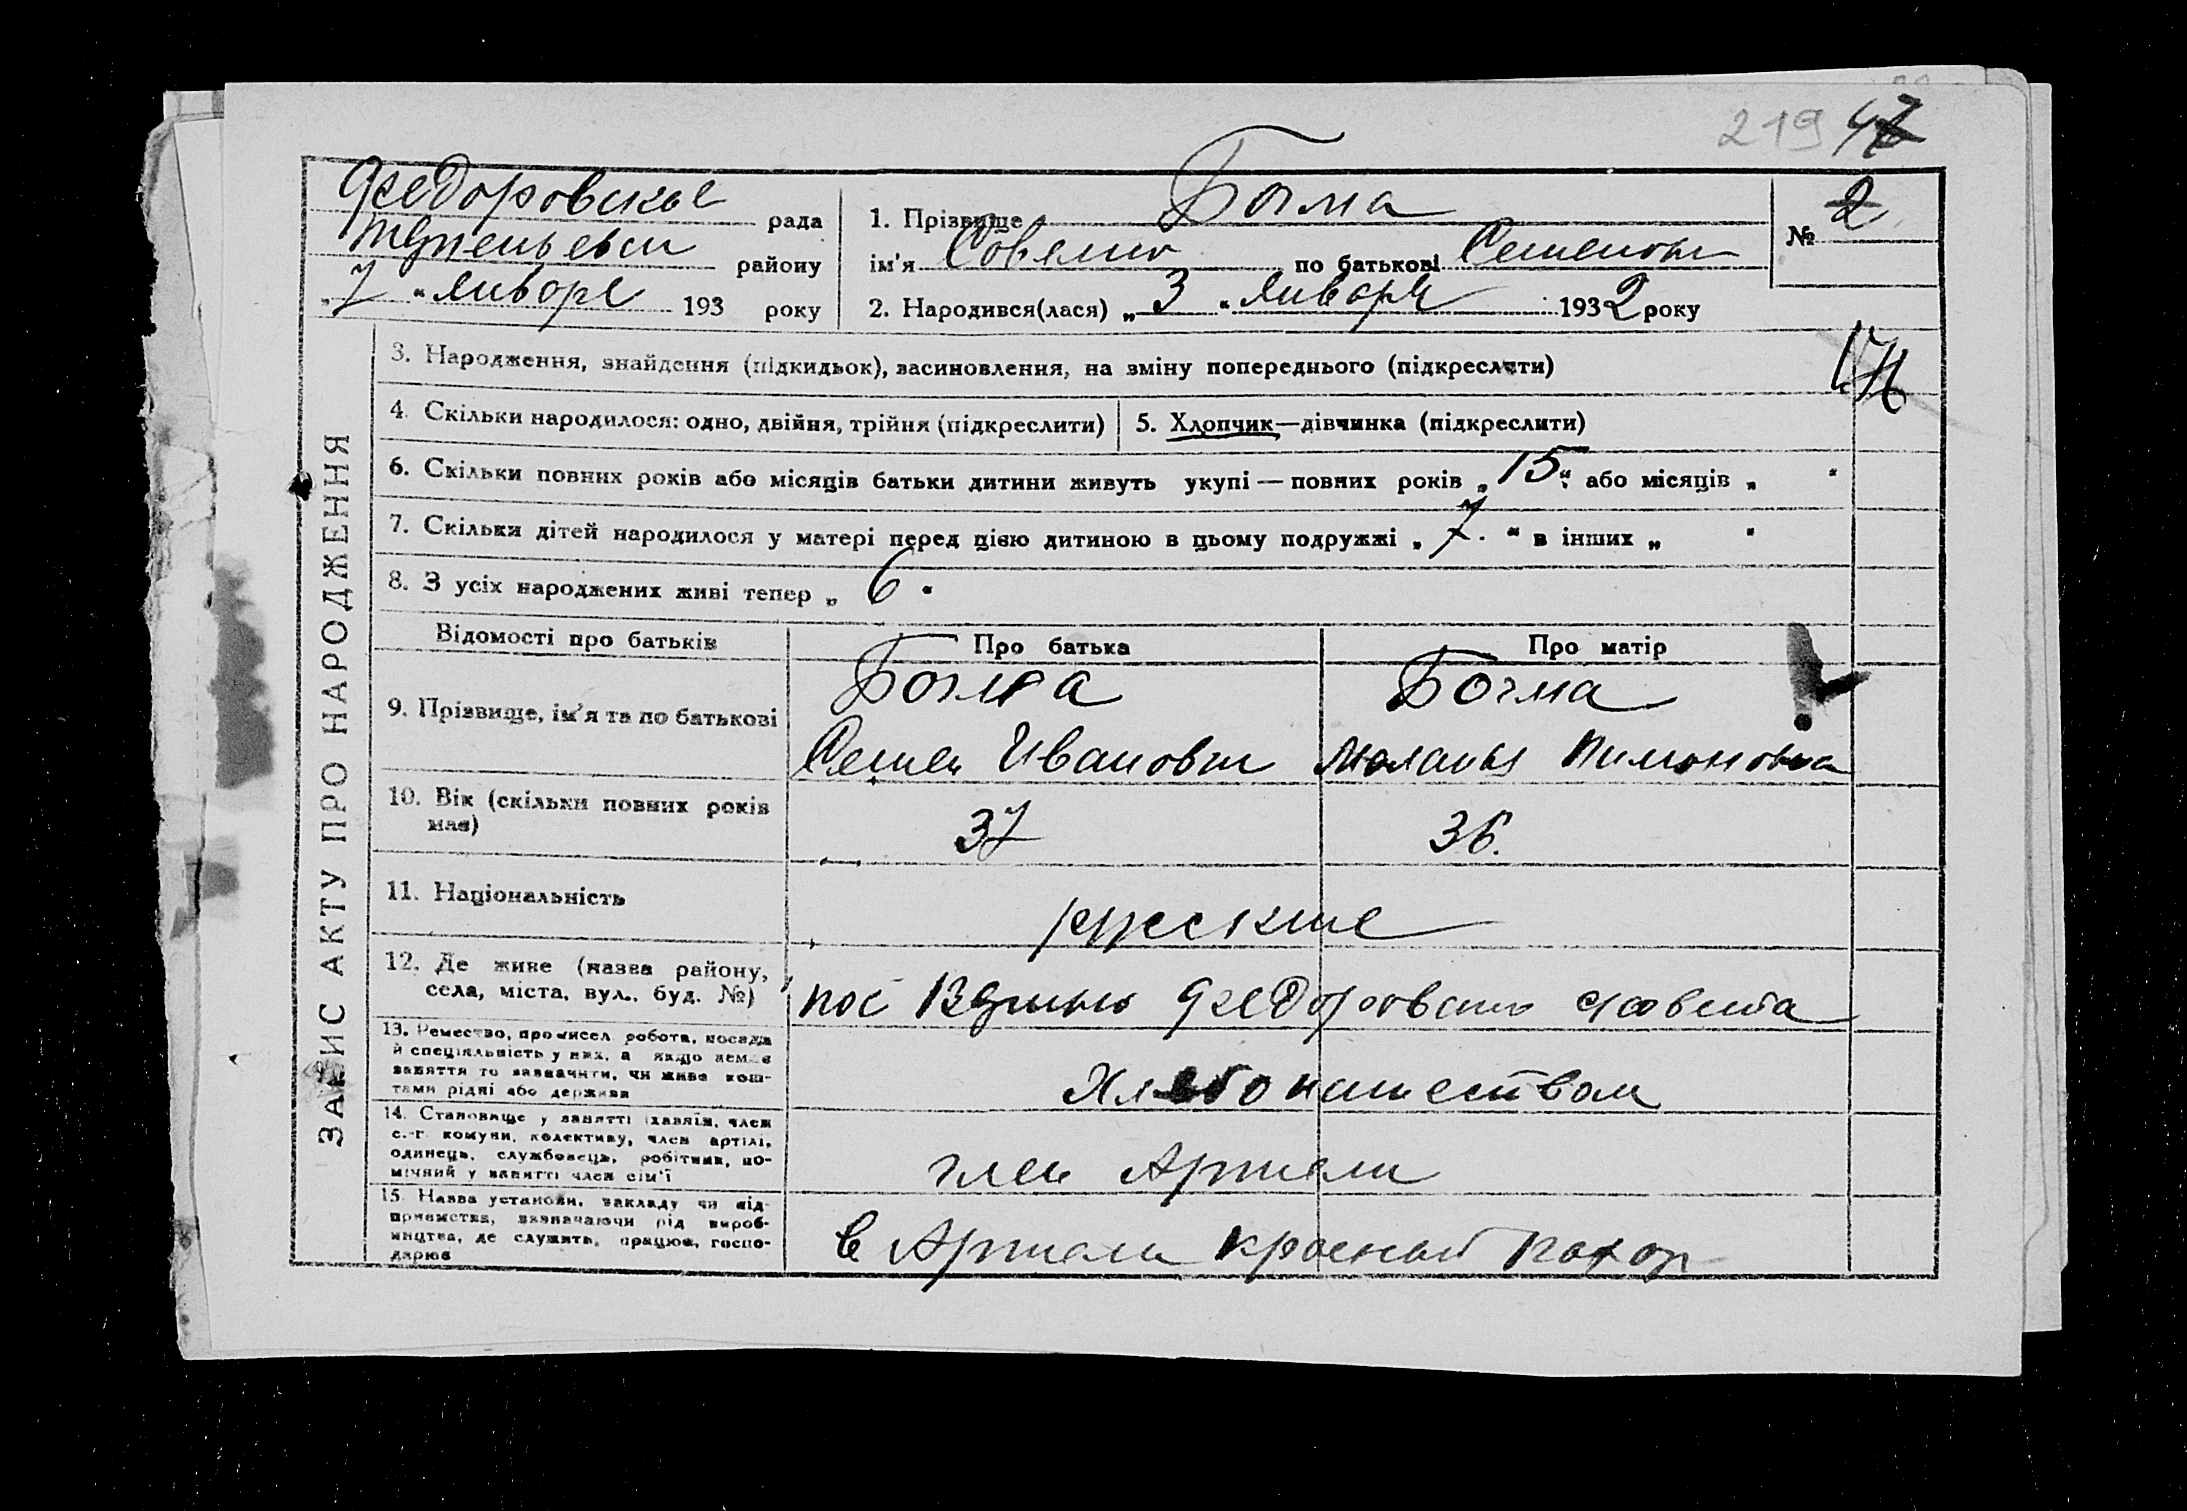 219 47
Федоровское рада
району
"7" Января 193 року
1. Прізвище Богма
№ 2
ім'я по батькові Семенов
2. Народився(лася) "3" Января 1932 року
ЗАПИС АКТУ ПРО НАРОДЖЕННЯ
3. Народження, знайдення (підкидьок), засиновлення, на зміну попереднього (підкреслити)
4. Скільки народилося: одно, двійня, трійня (підкреслити)
5. Хлопчик—дівчинка (підкреслити)
6. Скільки повних років або місяців батьки дитини живуть укупі — повних років „15“ або місяців „ “
7. Скільки дітей народилося у матері перед цією дитиною в цьому подружжі „7“ в інших „ “
8. З усіх народжених живі тепер „6“
Відомості про батьків Про батька Про матір
9. Прізвище, ім'я та по батькові
Богма Богма
Семен Иванович Маланья Пимоновна
10. Вік (скільки повних років
має)
37 36.
11. Національність
русские
12. Де живе (назва району,
села, міста, вул., буд. №)
пос Федоровского с/совета
13. Ремество, промисел, робота, посада
й спеціяльність у них, а якщо немає
заняття то зазначити, чи живе кош-
тами рідні або держави
Хлебопашеством
14. Становище у занятті (хазяїн, член
с.-г. комуни, колективу, член артілі,
одинець, службовець, робітник, по-
мічний у занятті член сім'ї
член Артели
15. Назва установи, закладу чи під-
приємства, зазначаючи рід вироб-
ництва, де служить, працює, госпо-
дарює
в Артели красный Пахарь